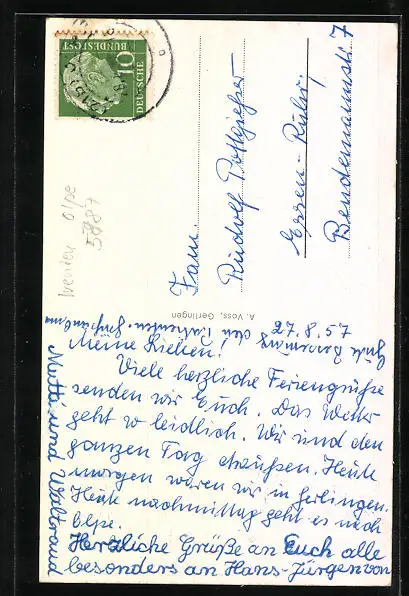 DEUTSCHE
BUNDESPOST
10
Fam.
Rudolf Pottgießer
Essen-Ruhr
Bendemannstr. 7
Wenden Olpe
5887
A. Voss, Gerlingen
27.8.57
Meine Lieben!
Viele herzliche Feriengrüße
senden wir Euch. Das Wetter
geht so leidlich. Wir sind den
ganzen Tag draußen. Heute
morgen waren wir in Gerlingen.
Heute nachmittag geht es nach
Olpe.
Herzliche Grüße an Euch alle
besonders an Hans-Jürgen von
Mutti und Waltraud